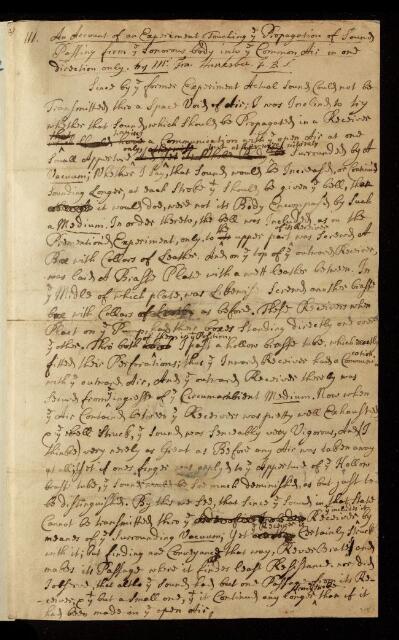 111. An Account of an Experiment Touching yͤ Propagation of Sound
Passing from yͤ Sonorous body into yͤ Common Air in one
direction only. By Mͬ. Fra: Hauksbee F.R.S.
Since by yͤ former Experiment Actual Sound could not be
Transmitted thro a Space Void of Air; I was Inclined to try
whether that Sound, which should be Propagated in a Receiver
having a Comunication with yͤ open Air at one
small Apperture only, Surrounded by A
Vacuum, Whether I say, that Sound, would be Increased, or Continued
Sounding Longer, at each Stroke yͭ should be given yͤ bell, than
it would doe, were not its Body Encompassed by Such
a Medium. In order thereto, the bell was Included as in the
Prementioned Experiment, only to the upper part of its Receiver was Screwed A
Box with Collars of Leather. And on yͤ top of yͤ outward Receiver,
was laid A Brasse Plate with a wett leather between. In
yͤ Midle of which plate, was Screwed another brasse
box with Collars of as before. These Receivers when
Plact on yͤ Pump had there boxes Standing directly one over
yͤ other, Thro both I past a hollow brasse tube, which exactly
fitted their Perforations; thus yͤ Inward Receiver had a Communication
with yͤ outward Air, And yͤ outward Receiver therby was
Secured from yͤ ingresse of yͤ Circumambient Medium. Now when
yͤ Air Contained between yͤ Receivers was pretty well Exhausted
& yͤ bell Struck, yͤ Sound was Senseably very Vigorous, And I
thinke very nerely as Great as Before any Air was taken away
at all; yet if ones finger was applyd to yͤ Appertur of yͤ Hollow
brass tube, yͤ Sound would be Soe much deminished, as but just to
be distinguished. By this we See, that since yͤ Sound in that State
Cannot be transmitted thro yͤ Receiver by
means of yͤ Surrounding Vacuum; yet Certainly Struck
with it; but finding noe Conveyance that way, Reverberates and
makes its Passage where it finds least Resistance: nor did
I observe, that altho yͤ Sound had but one Passage from its Receiver
& yͭ but a Small one, yͭ it Continued any longer than if it
had been made in yͤ open Air.